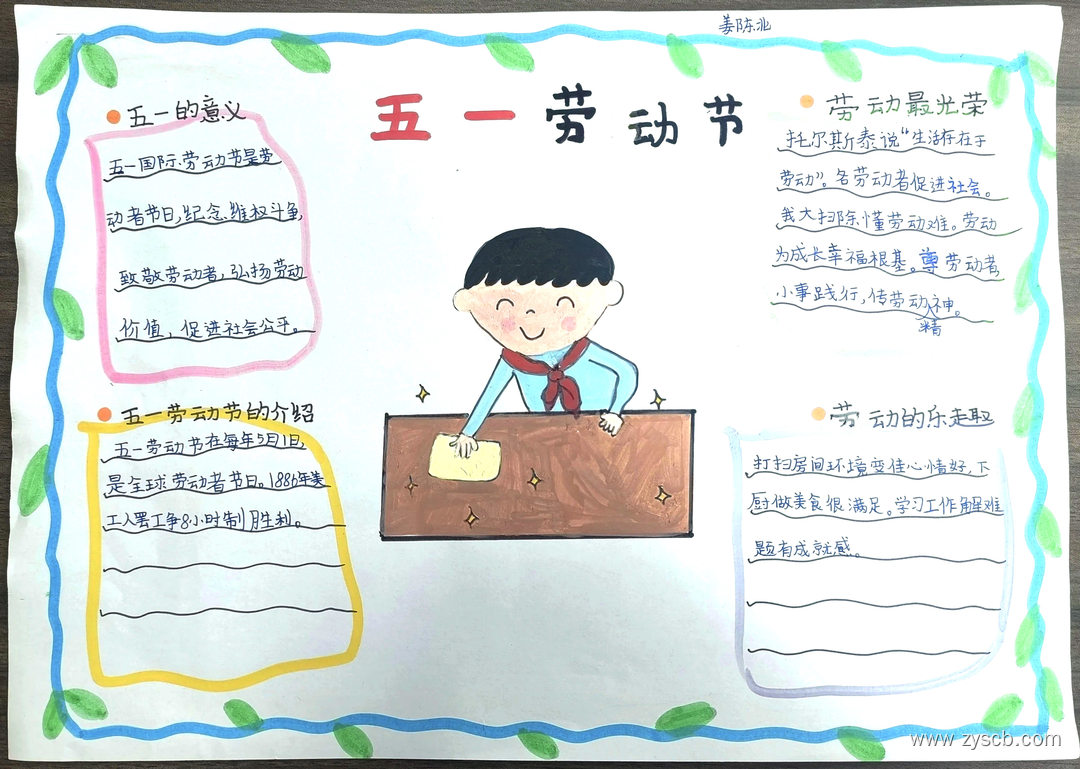 姜陈北
五一劳动节
五一的意义
五一国际劳动节是劳
动者节日,纪念维权斗争,
致敬劳动者,弘扬劳动
价值,促进社会公平。
劳动最光荣
托尔斯泰说“生活存在于
劳动”。各劳动者促进社会。
我大扫除懂劳动难。劳动
为成长幸福根基。尊劳动者
小事践行,传劳动神。
精
五一劳动节的介绍
五一劳动节在每年5月1日,
是全球劳动者节日。1886年美
工人罢工争8小时制胜利。
劳动的乐走取
打扫房间环境变佳心情好,下
厨做美食很满足。学习工作解难
题有成就感。
www.zyscb.com